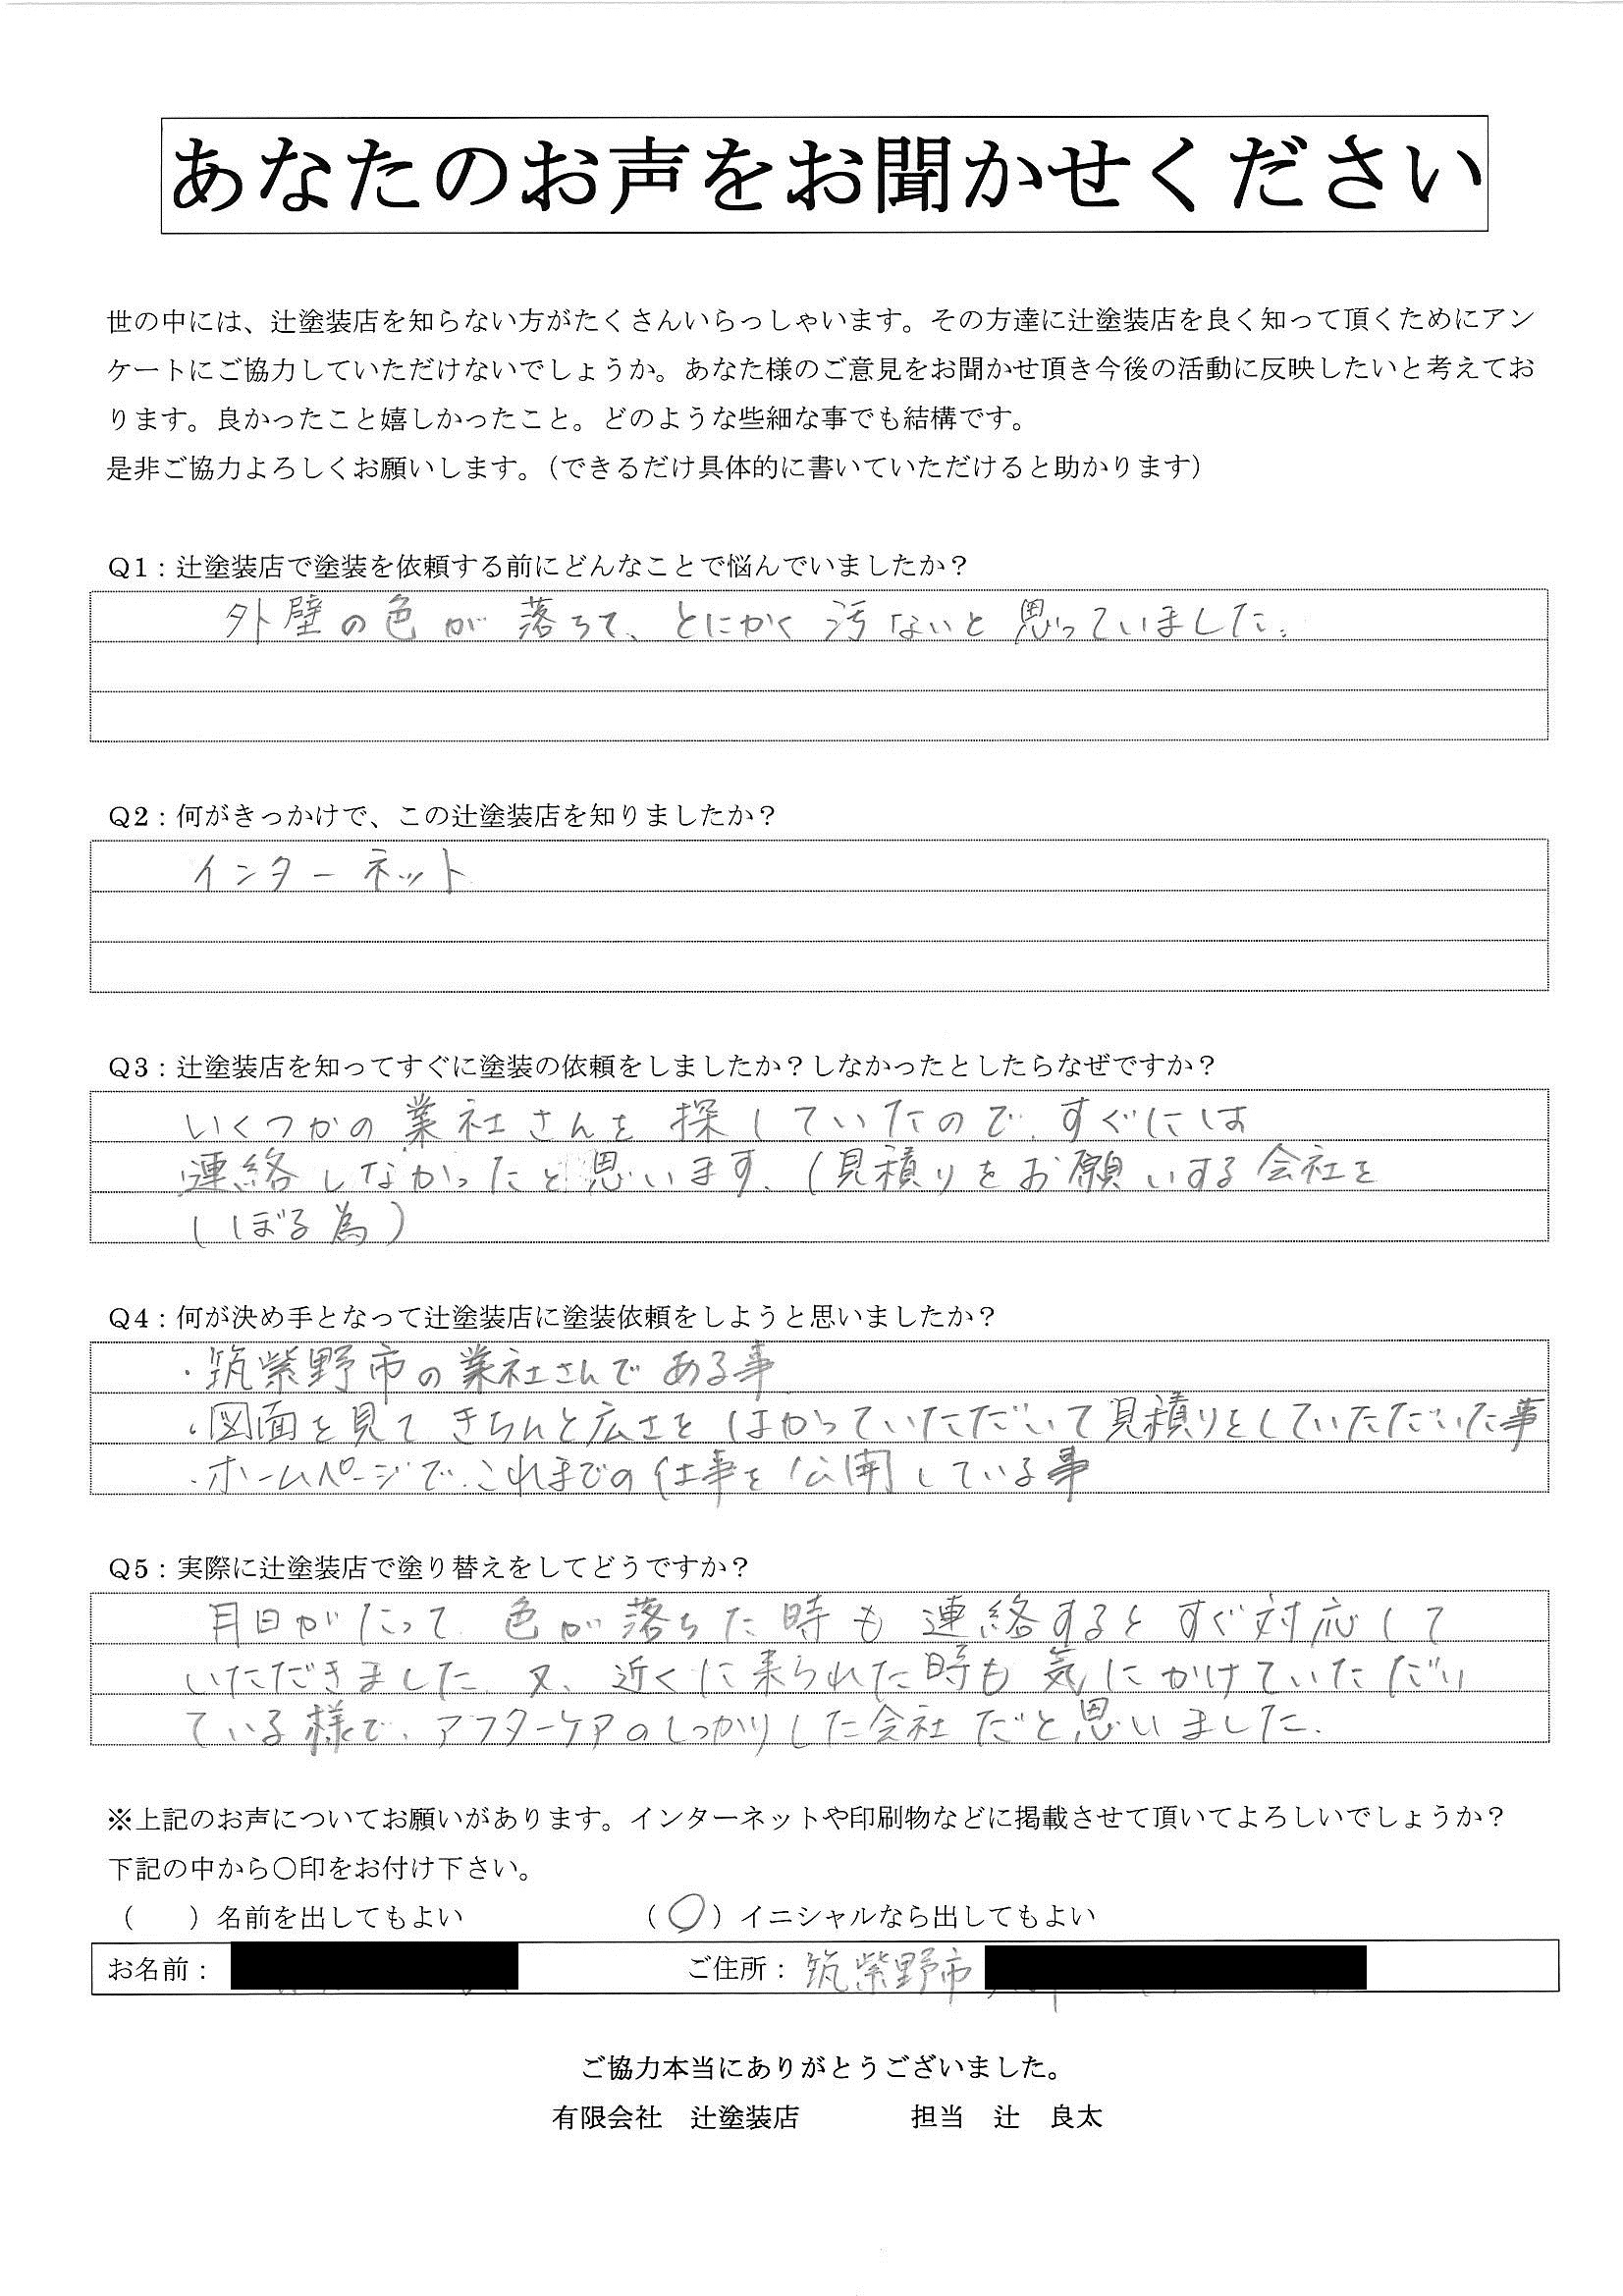 あなたのお声をお聞かせください
世の中には、辻塗装店を知らない方がたくさんいらっしゃいます。その方達に辻塗装店を良く知って頂くためにアン
ケートにご協力していただけないでしょうか。あなた様のご意見をお聞かせ頂き今後の活動に反映したいと考えてお
ります。良かったこと嬉しかったこと。どのような些細な事でも結構です。
是非ご協力よろしくお願いします。（できるだけ具体的に書いていただけると助かります）
Q1：辻塗装店で塗装を依頼する前にどんなことで悩んでいましたか？
外壁の色が落ちて、とにかく汚ないと思っていました。
Q2：何がきっかけで、この辻塗装店を知りましたか？
インターネット
Q3：辻塗装店を知ってすぐに塗装の依頼をしましたか？しなかったとしたらなぜですか？
いくつかの業社さんを探していたので、すぐには
連絡しなかったと思います。（見積りをお願いする会社を
しぼる為）
Q4：何が決め手となって辻塗装店に塗装依頼をしようと思いましたか？
・筑紫野市の業社さんである事
・図面を見てきちんと広さをはかっていたただいて見積りをしていたただいた事
・ホームページで、これまでの仕事を公開している事
Q5：実際に辻塗装店で塗り替えをしてどうですか？
月日がたって、色が落ちた時も連絡するとすぐ対応して
いただきました。又、近くに来られた時も気にかけていただい
ている様で、アフターケアのしっかりした会社だと思いました。
※上記のお声についてお願いがあります。インターネットや印刷物などに掲載させて頂いてよろしいでしょうか？
下記の中から〇印をお付け下さい。
（　　）名前を出してもよい　（〇）イニシャルなら出してもよい
お名前：　ご住所：筑紫野市
ご協力本当にありがとうございました。
有限会社　辻塗装店　担当　辻　良太